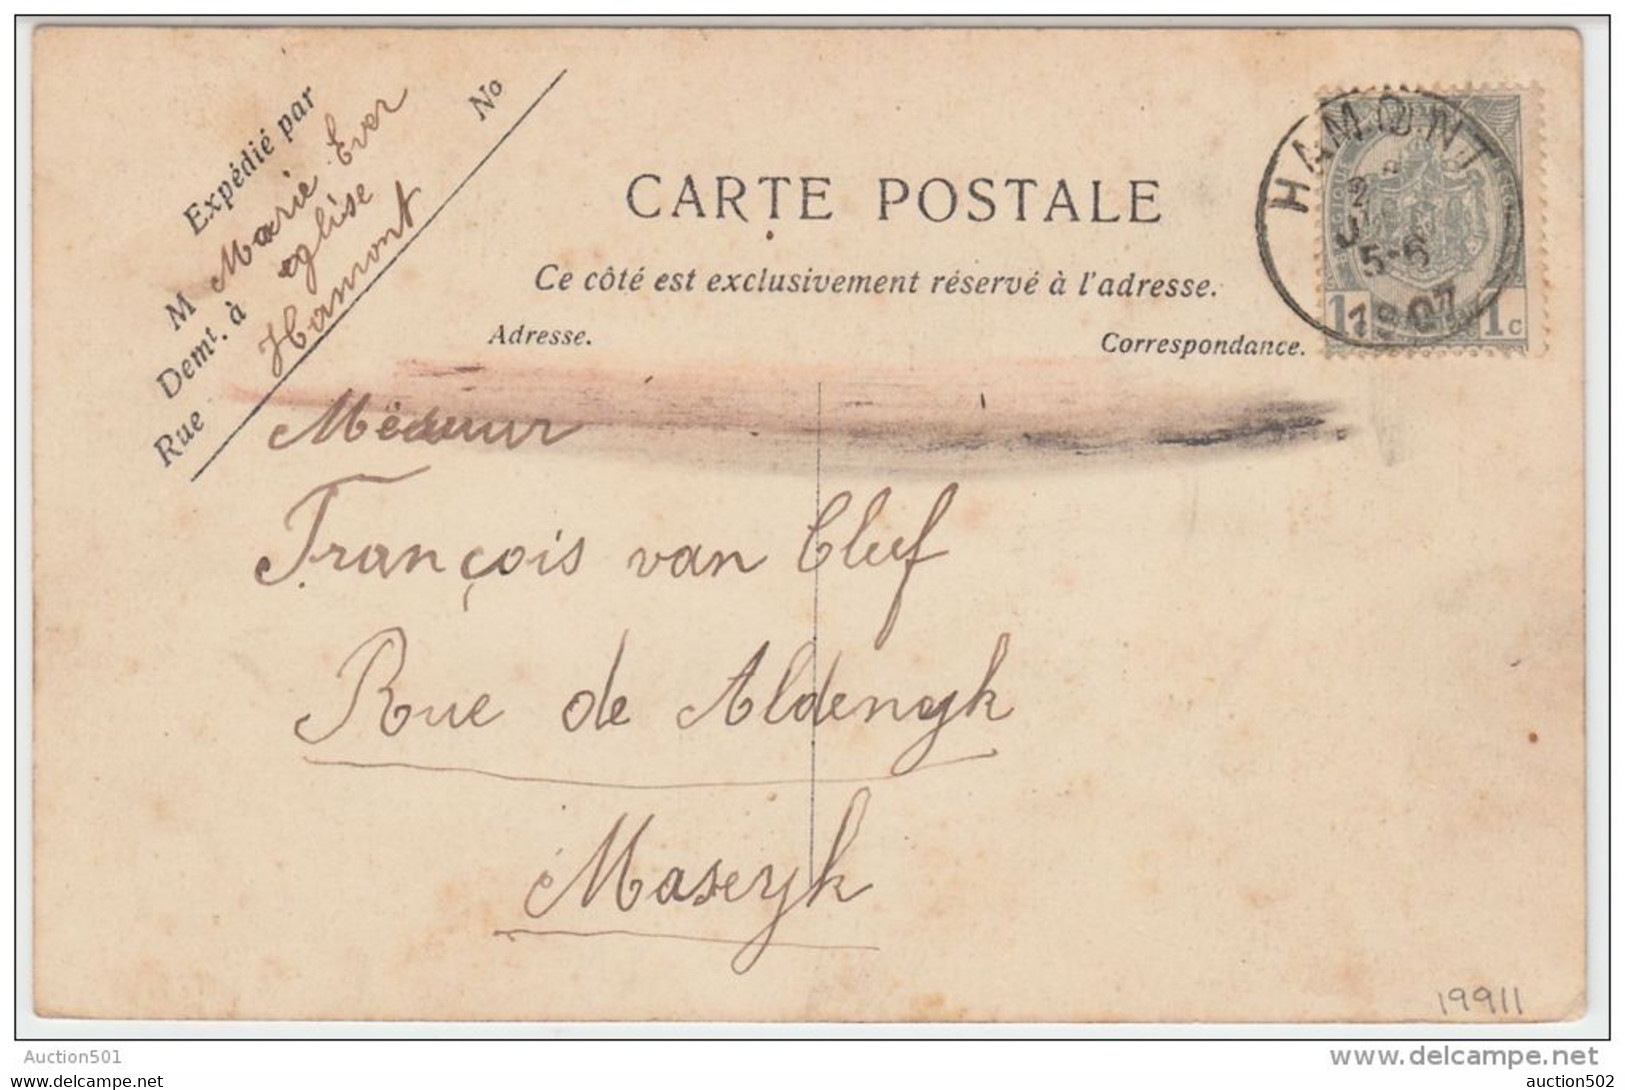 Expédié par No
M Marie Ever
Demt. à église
Rue Hamont
CARTE POSTALE
Ce côté est exclusivement réservé à l'adresse.
Adresse.
Correspondance.
HAMONT
2
5-6
1907
1c
François van Cleef
Rue de Aldeneyk
Maseyk
19911
Auction501
www.delcampe.net
auction502